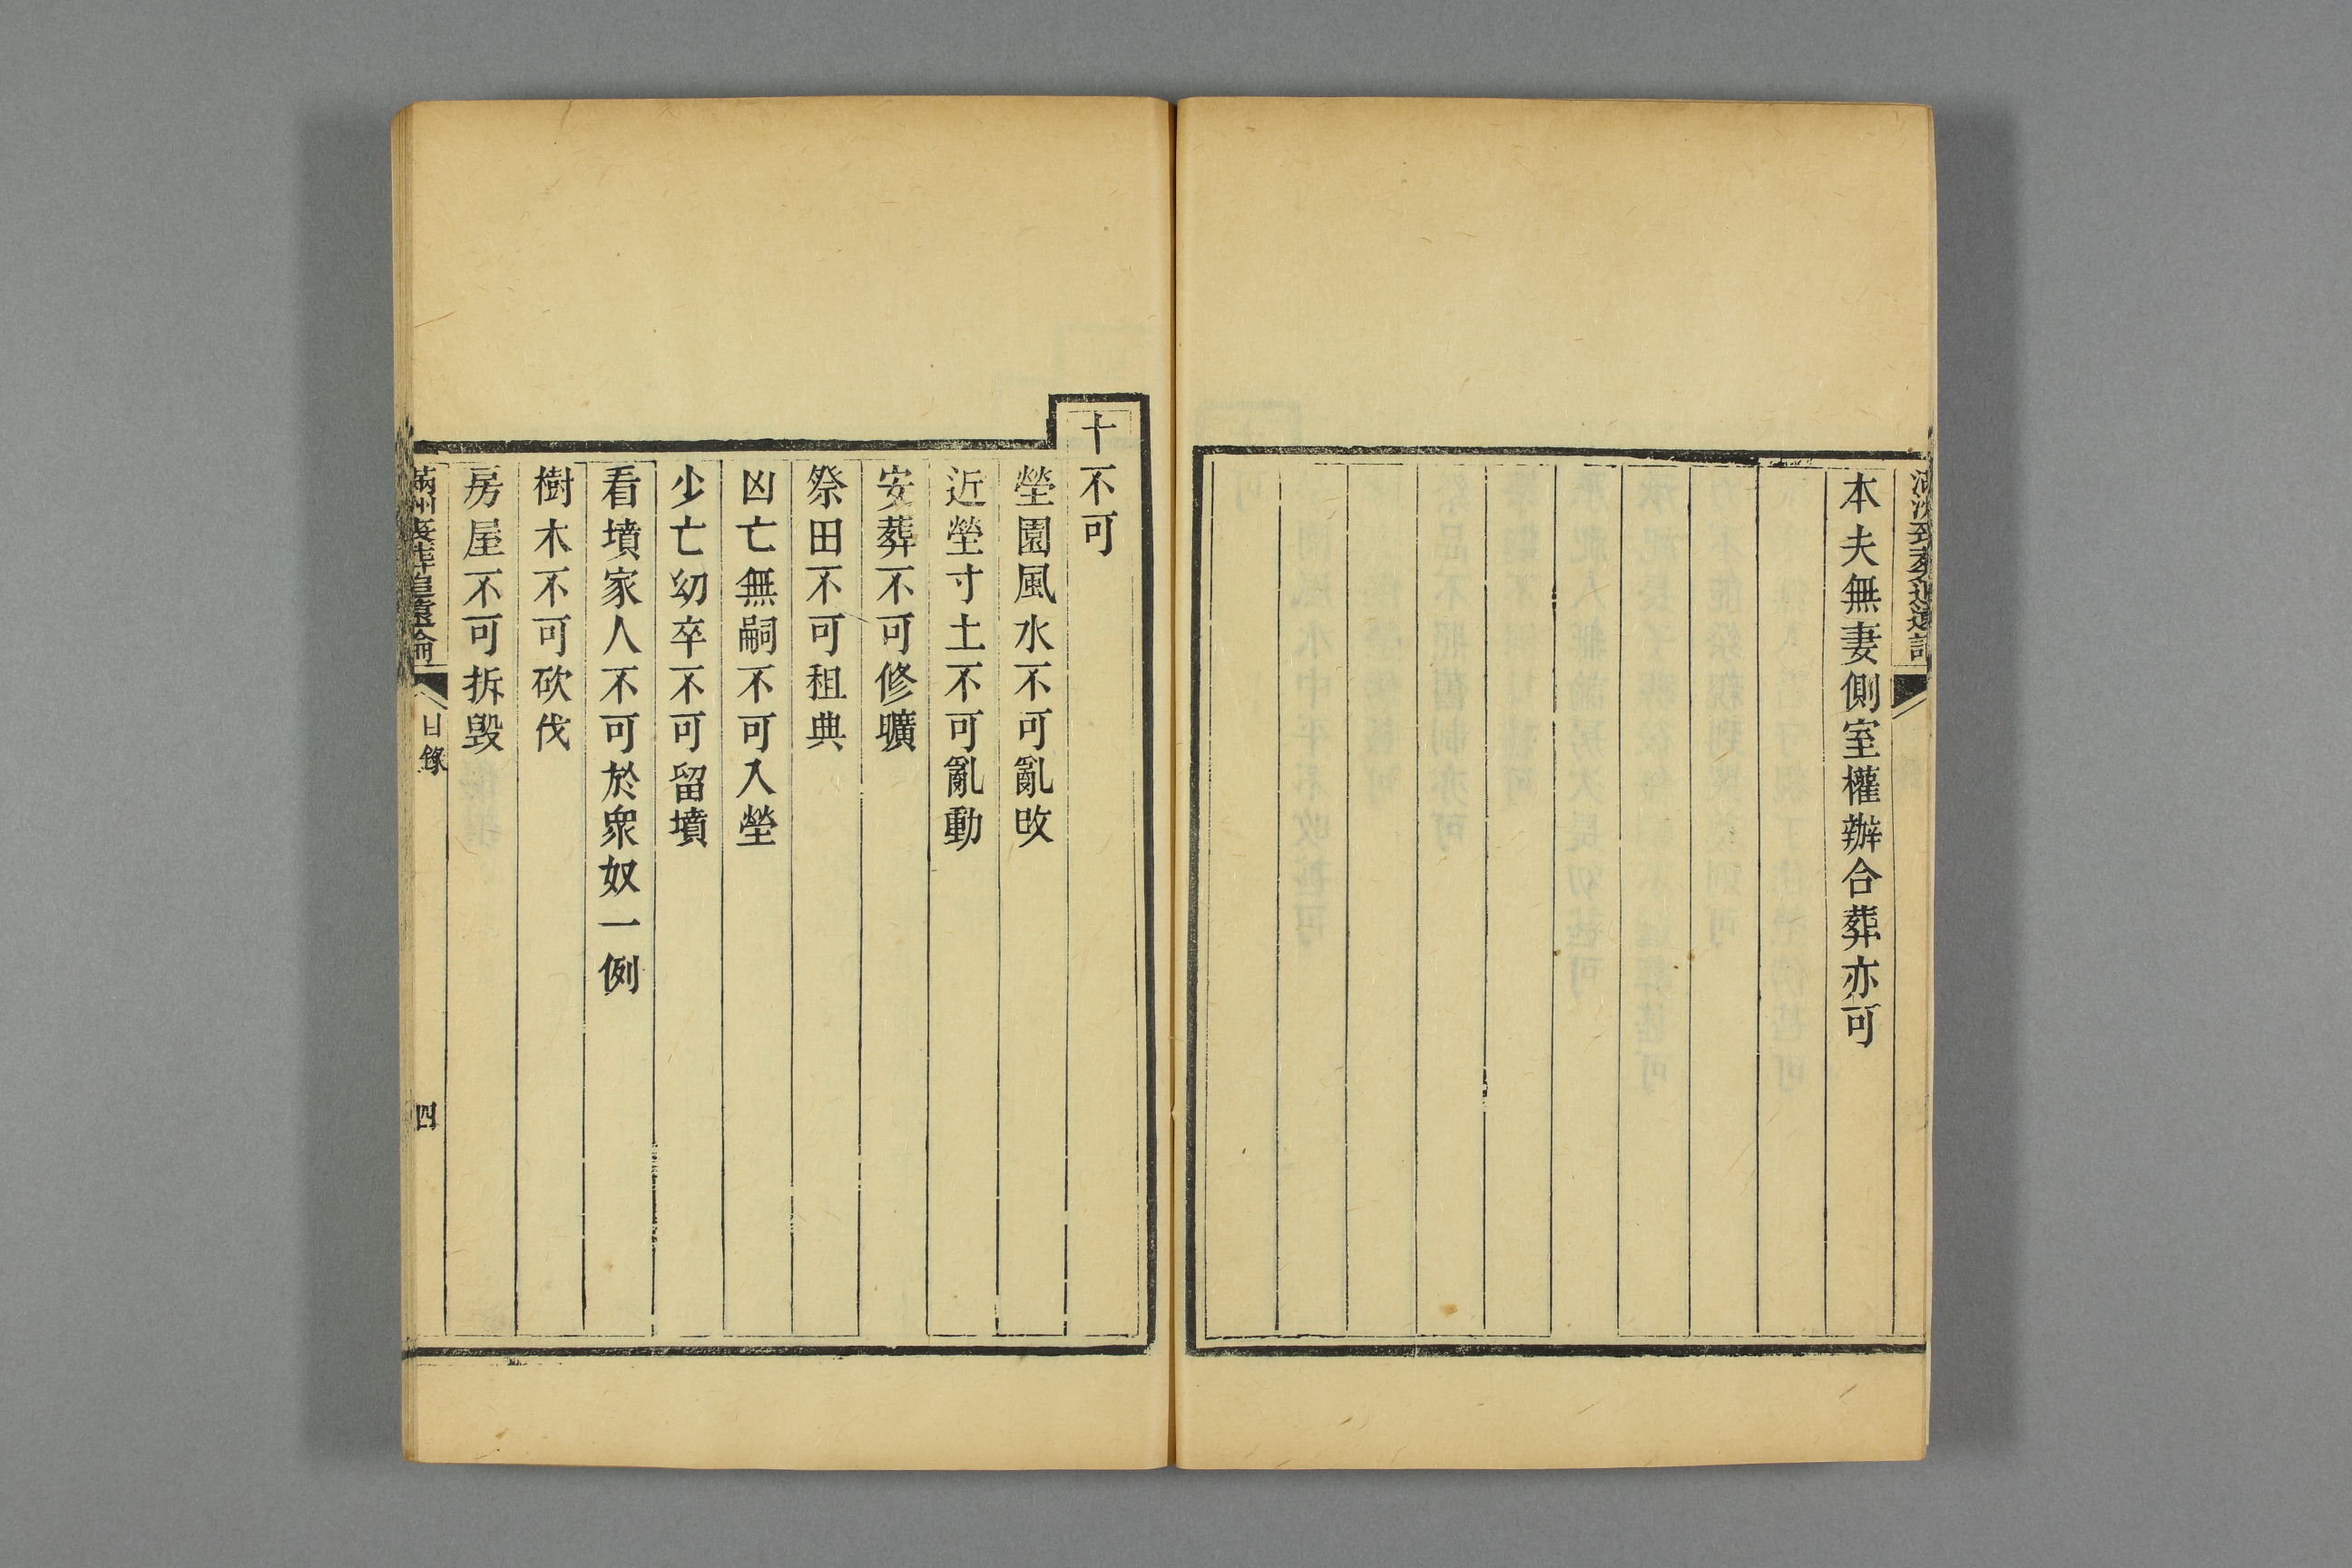 本夫無妻側室權辦合葬亦可
十不可
塋園風水不可亂改
近塋寸土不可亂動
安葬不可修壙
祭田不可租典
凶亡無嗣不可入塋
少亡幼卒不可留墳
看墳家人不可於衆奴一例
樹木不可砍伐
房屋不可拆毀
滿州喪葬追遠論
目錄
四